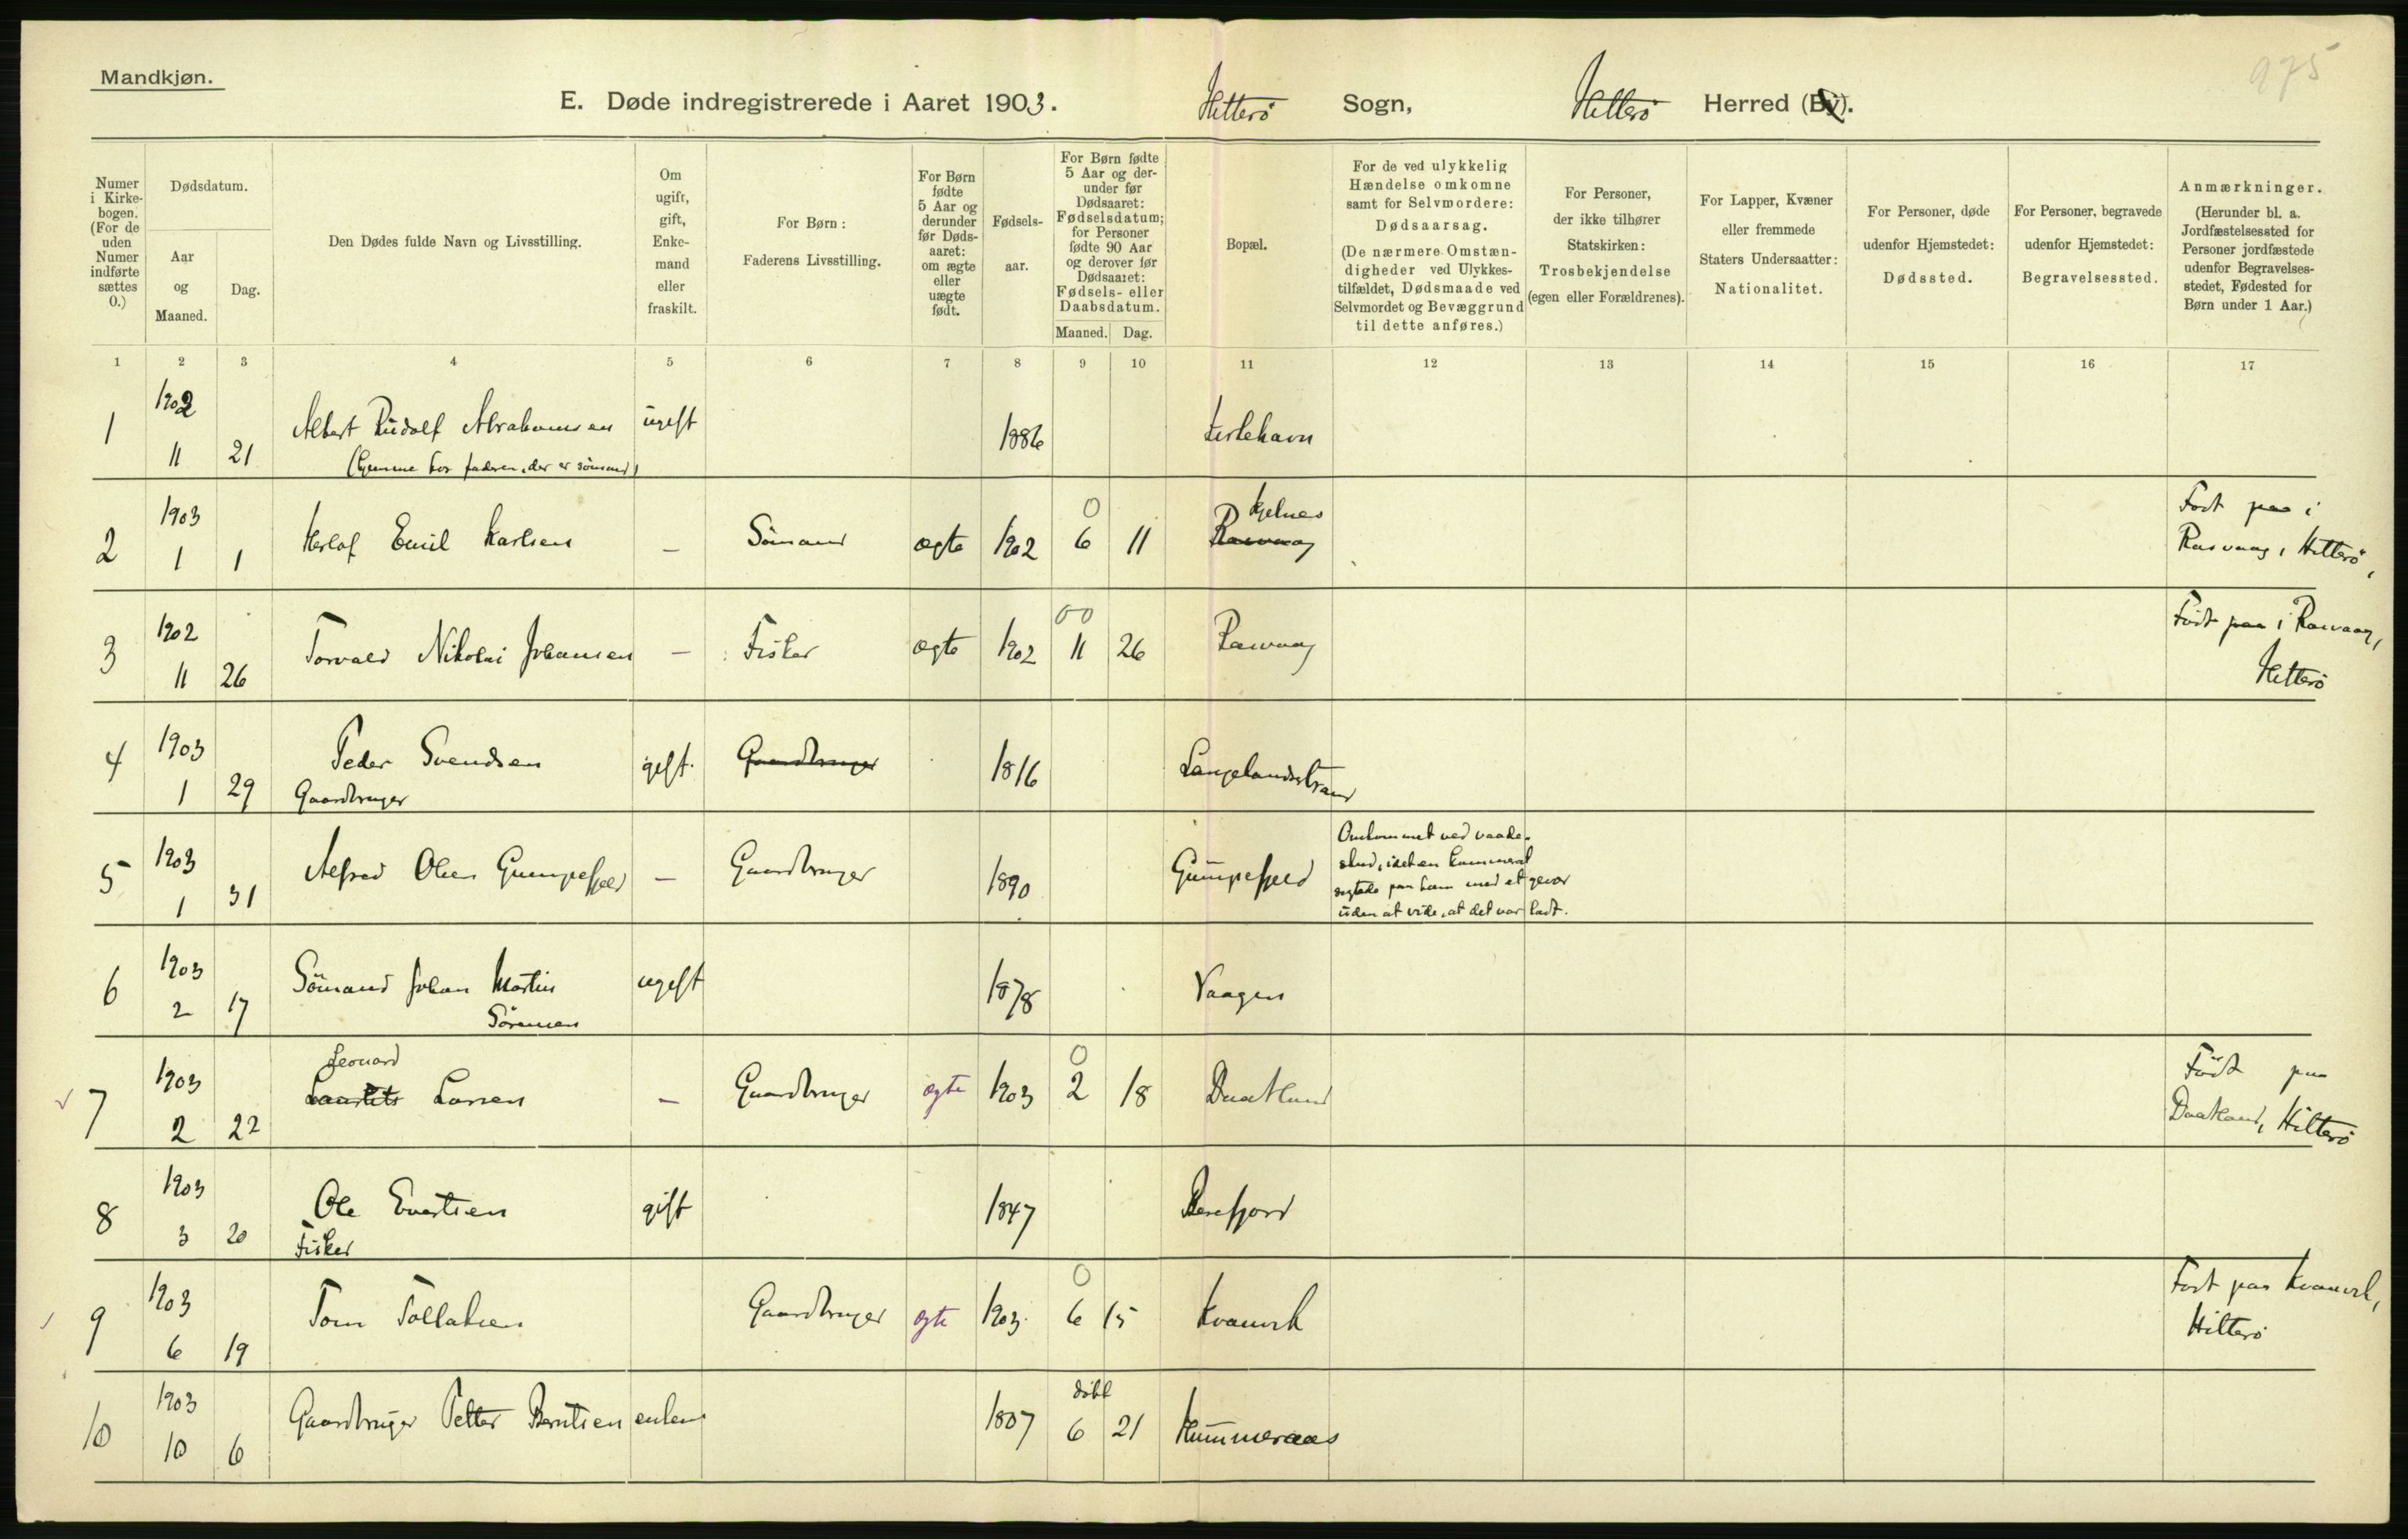 Mandkjøn.
975
E. Døde indregistrerede i Aaret 1903. Hitterö Sogn, Hitterö Herred (By).
Numer i Kirke-bogen. (For de uden Numer indførte sættes 0.)
Dødsdatum.
Aar og Maaned.
Dag.
Den Dødes fulde Navn og Livsstilling.
Om ugift, gift, Enke-mand eller fraskilt.
For Børn: Faderens Livsstilling.
For Børn fødte 5 Aar og derunder før Døds-aaret: om ægte eller uægte født.
Fødsels-aar.
For Børn fødte 5 Aar og der-under før Dødsaaret: Fødselsdatum; for Personer fødte 90 Aar og derover før Dødsaaret: Fødsels- eller Daabsdatum.
Maaned. Dag.
Bopæl.
For de ved ulykkelig Hændelse omkomne samt for Selvmordere: Dødsaarsag. (De nærmere Omstæn-digheder ved Ulykkes-tilfældet, Dødsmaade ved Selvmordet og Bevæggrund til dette anføres.)
For Personer, der ikke tilhører Statskirken: Trosbekjendelse (egen eller Forældrenes).
For Lapper, Kvæner eller fremmede Staters Undersaatter: Nationalitet.
For Personer, døde udenfor Hjemstedet: Dødssted.
For Personer, begravede udenfor Hjemstedet: Begravelsessted.
Anmærkninger. (Herunder bl. a. Jordfæstelsessted for Personer jordfæstede udenfor Begravelses-stedet, Fødested for Børn under 1 Aar.)
1 2 3 4 5 6 7 8 9 10 11 12 13 14 15 16 17
1 1902 11 21 Albert Rudolf Abrahamsen ugift 1886
(hjemme hos faderen, der er sömand)
2 1903 1 1 Herlof Emil Karlsen — Sömand ægte 1902 0 6 11 Rasvaag Kjelnes Født paa i
Rasvaag, Hitterö,
3 1902 11 26 Torvald Nikolai Johansen — Fisker ægte 1902 00 11 26 Rasvaag Født paa i Rasvaag,
Hitterö
4 1903 1 29 Peder Svendsen gift Gaardbruger 1816 Langelandsstrand
Gaardbruger
5 1903 1 31 Alfred Olsen Gumpefjeld — Gaardbruger 1890 Gumpefjeld Omkommet ved vaade-
skud, idet en kammerat
sigtede paa ham med et gevær
uden at vide, at det var ladt.
6 1903 2 17 Sömand Johan Martin ugift 1878 Vaagen
Sörensen
Leonard
7 1903 2 22 Larsen — Gaardbruger ægte 1903 0 2 18 Daatland Født paa
Daatland, Hitterö
8 1903 3 20 Ole gift 1847
Fisker
9 1903 6 19 Tom Tollaksen Gaardbruger ægte 1903 0 6 15 Kvanvik Født paa Kvanvik,
Hitterö
10 1903 10 6 Gaardbruger Petter Berntsen enkem 1807 döbt 6 21 Hummeraas